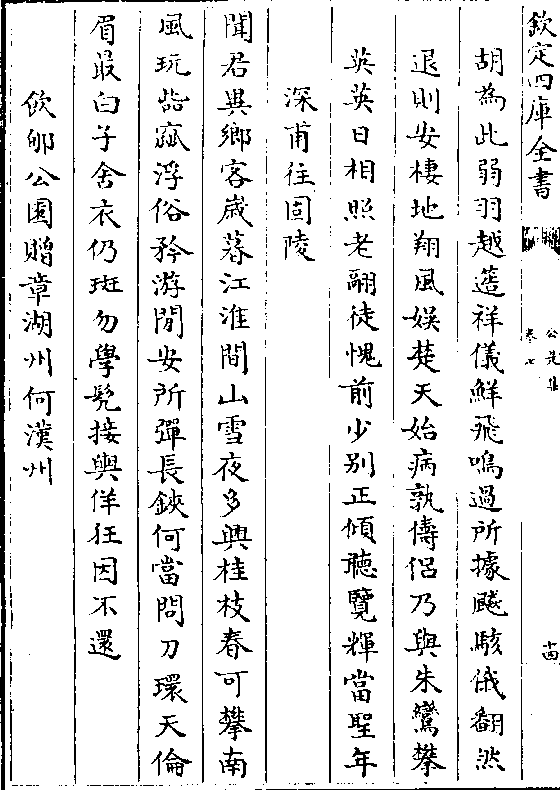 欽定四庫全書
公是集
卷七
十四
胡為此弱羽越簉祥儀鮮飛鳴過所據飈駭俄翻然
退則安棲地翔風娱楚天始病孰儔侣乃與朱鸞攀
英英日相照老翮徒愧前少别正傾聽覽輝當聖年
深甫往固陵
聞君異鄉客歳暮江淮間山雪夜多興桂枝春可攀南
風玩呰窳浮俗矜游閒安所彈長鋏何當問刀環天倫
眉最白子舍衣仍斑勿學髠接輿佯狂因不還
飲郇公園贈章湖州何漢州